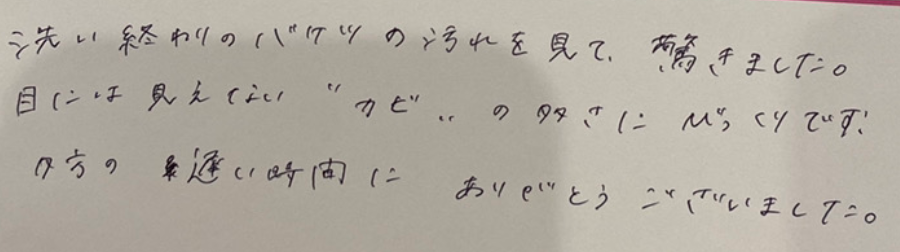 洗い終わりのバケツの汚れを見て、驚きました。
目には見えない"カビ"の多さにびっくりです!
夕方の遅い時間に ありがとうございました。